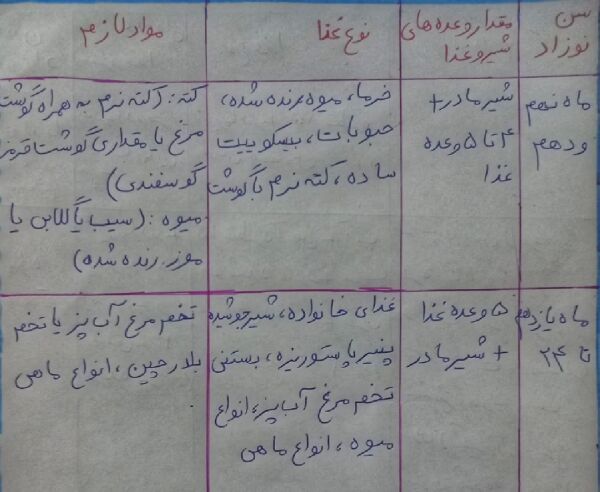 سن نوزاد
مقدار وعده های شیر و غذا
نوع غذا
مواد لازم
ماه نهم
و دهم
شیر مادر +
۴ تا ۵ وعده
غذا
خرما، میوه رنده شده،
حبوبات، بیسکوییت
ساده، کته نرم با گوشت
کته: (کته نرم به همراه گوشت
مرغ یا مقداری گوشت قرمز
گوسفندی)
میوه: (سیب یا گلابی یا
موز رنده شده)
ماه یازدهم
تا ۲۴
۵ وعده غذا
+ شیر مادر
غذای خانواده، شیر جوشیده
پنیر پاستوریزه، بستنی
تخم مرغ آب پز، انواع
میوه، انواع ماهی
تخم مرغ آب پز یا تخم
بلدرچین، انواع ماهی